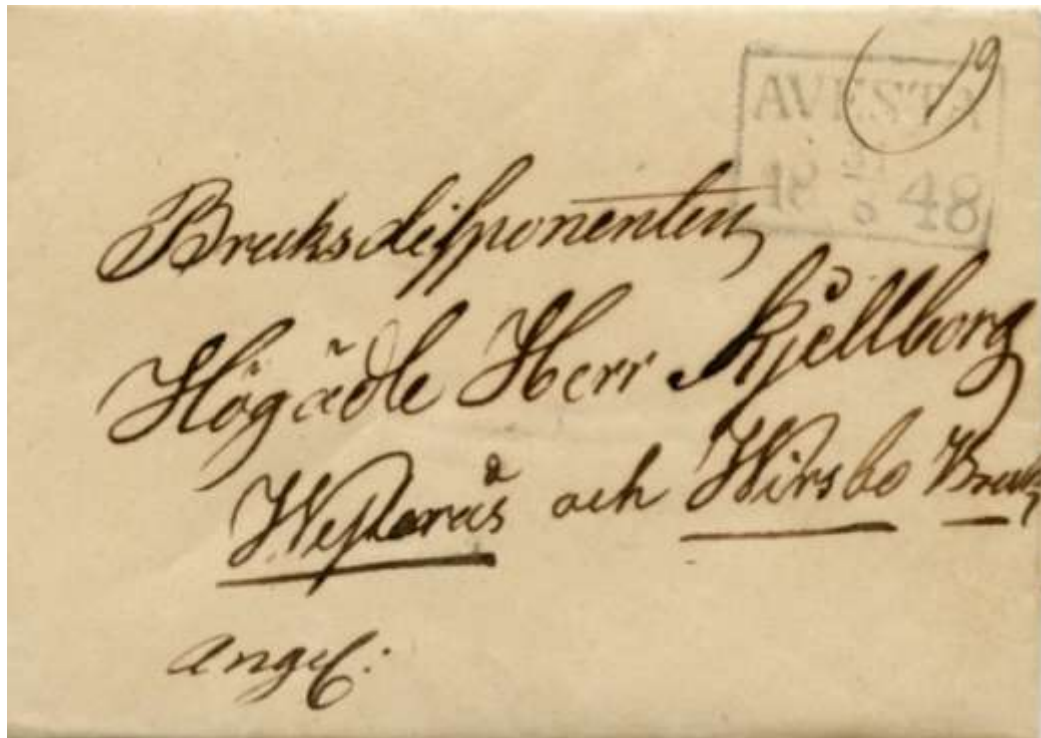 19
AVESTA
18 48
Bruksdisponenten
Högädle Herr Kjellborg
Westerås och Wirsbo Bruk
Angel: